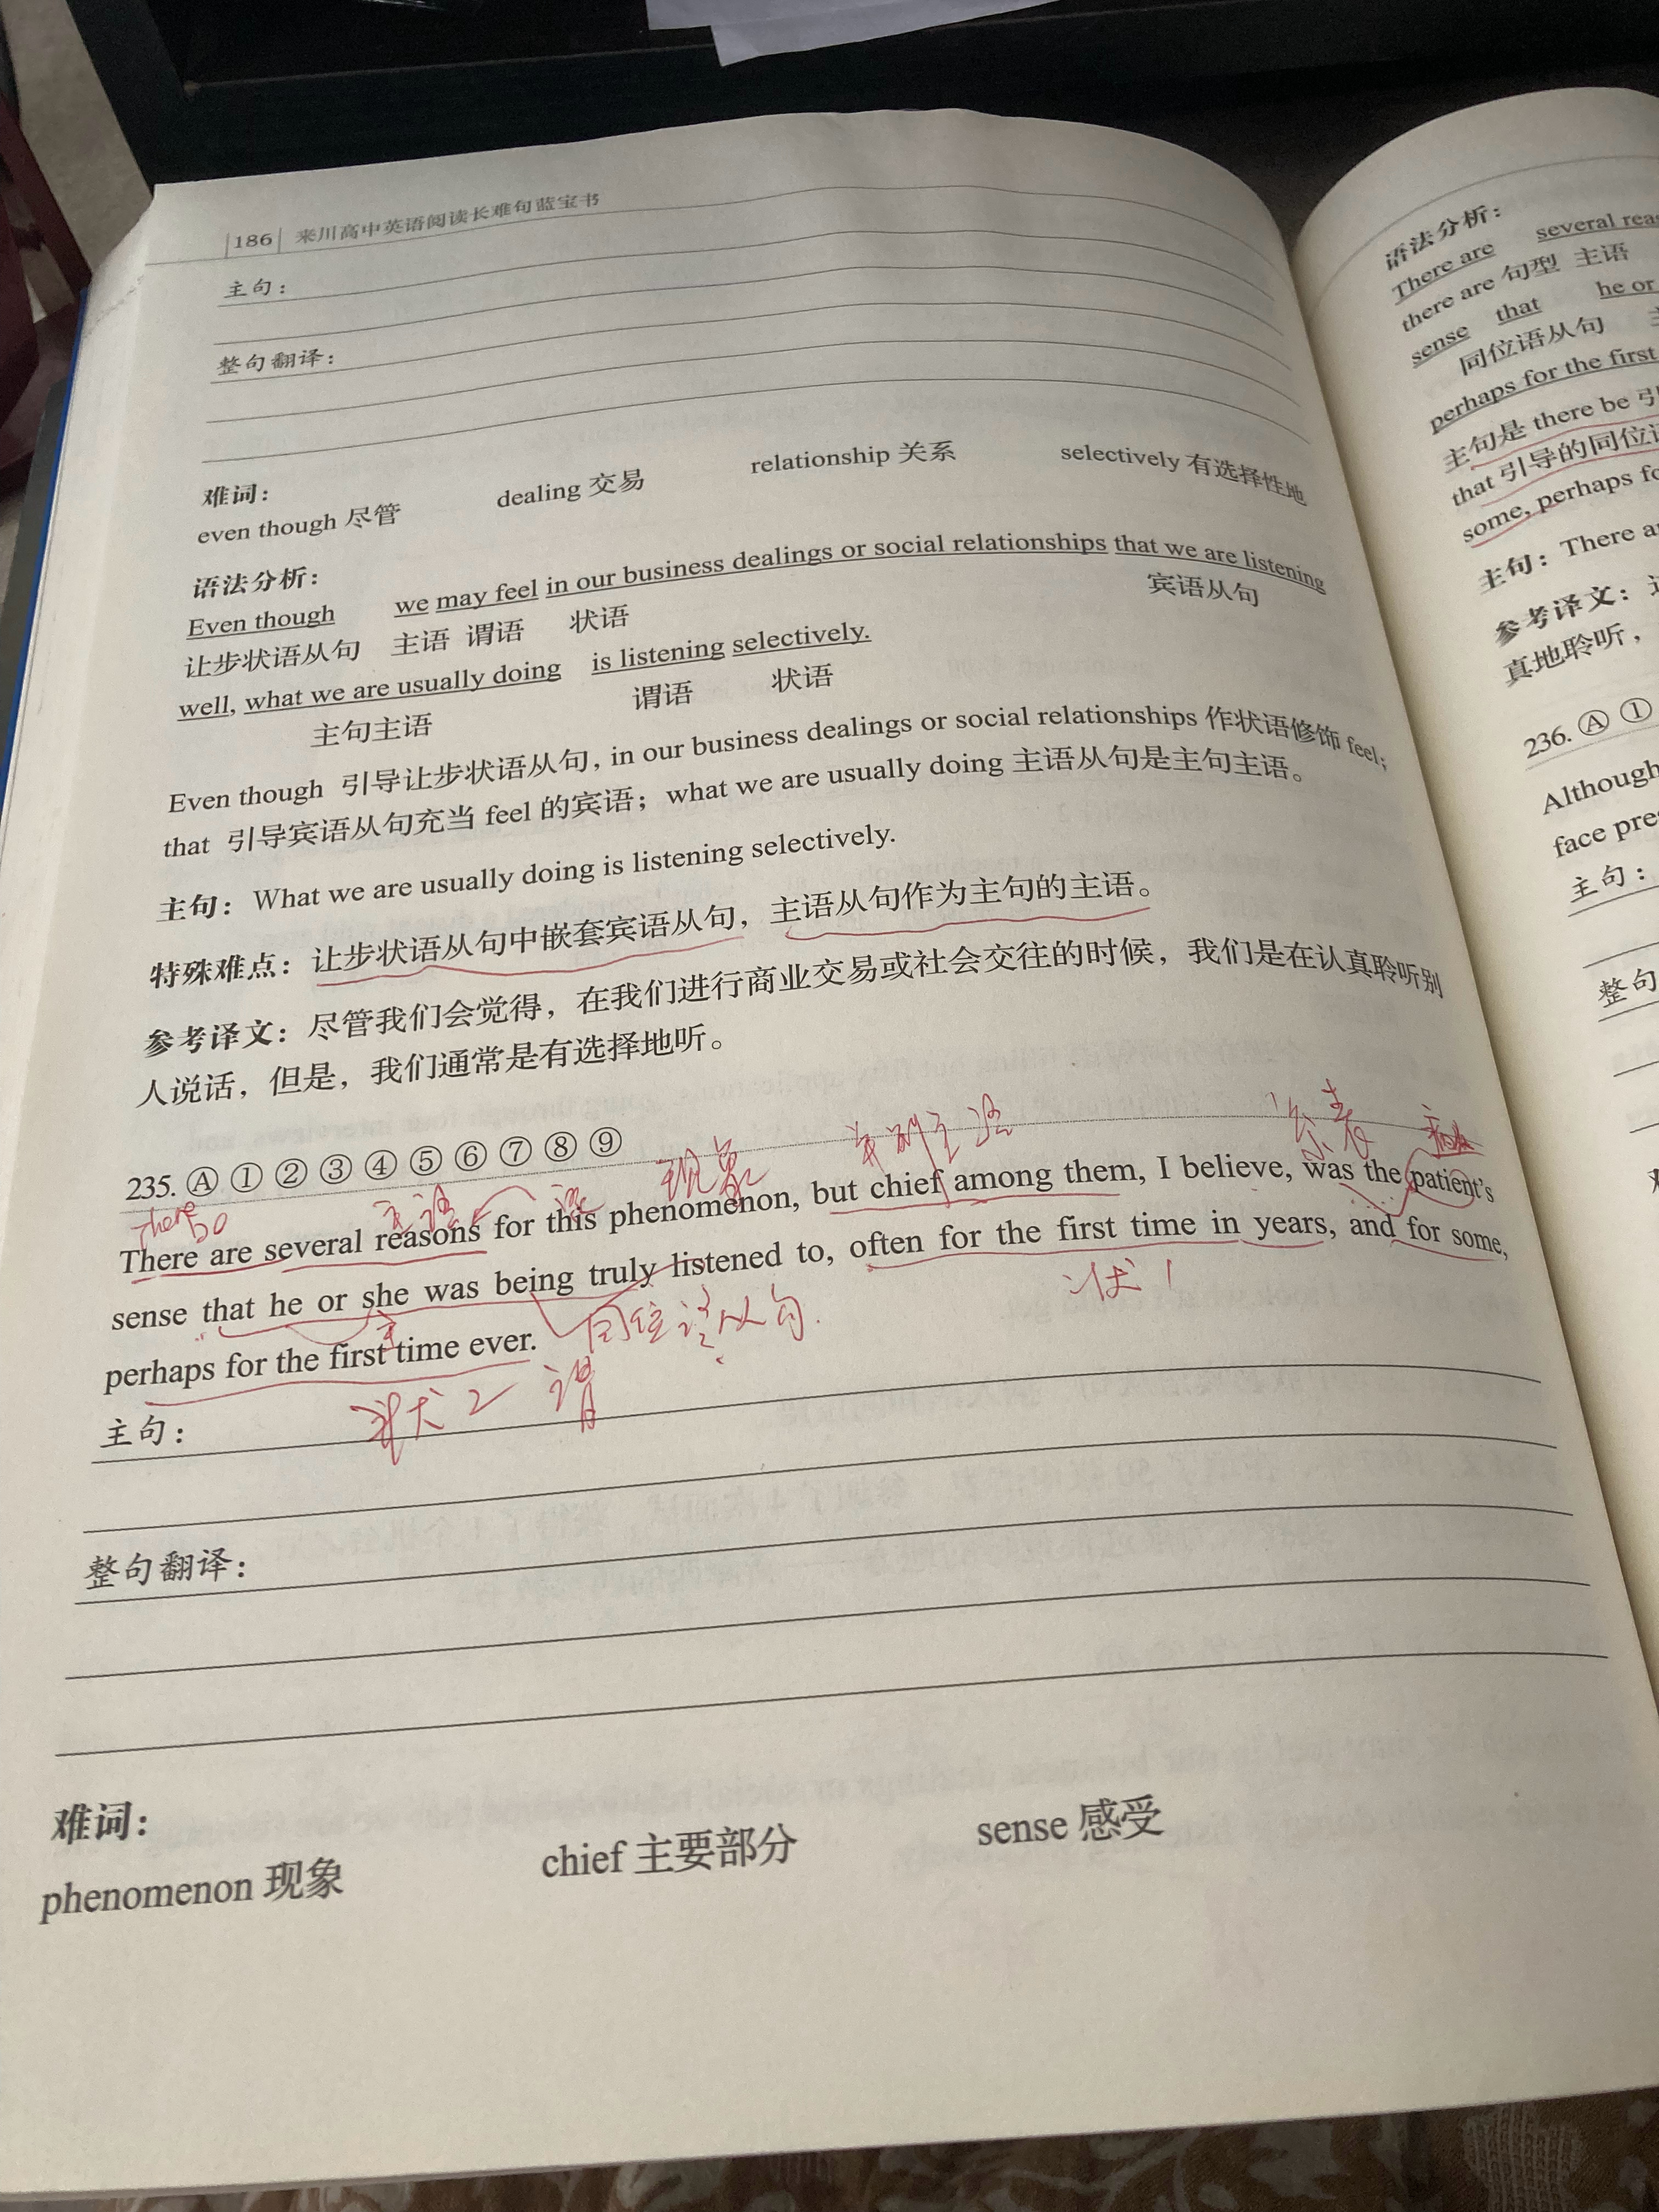 186 来川高中英语阅读长难句蓝宝书
主句：
整句翻译：
难词：
even though 尽管 dealing 交易 relationship 关系 selectively 有选择性地
语法分析：
Even though we may feel in our business dealings or social relationships that we are listening
让步状语从句 主语 谓语 状语 宾语从句
well, what we are usually doing is listening selectively.
主句主语 谓语 状语
Even though 引导让步状语从句, in our business dealings or social relationships 作状语修饰 feel;
that 引导宾语从句充当 feel 的宾语；what we are usually doing 主语从句是主句主语。
主句：What we are usually doing is listening selectively.
特殊难点：让步状语从句中嵌套宾语从句，主语从句作为主句的主语。
参考译文：尽管我们会觉得，在我们进行商业交易或社会交往的时候，我们是在认真聆听别
人说话，但是，我们通常是有选择地听。
235. Ⓐ ① ② ③ ④ ⑤ ⑥ ⑦ ⑧ ⑨
There 主语 现象 系表
There are several reasons for this phenomenon, but chief among them, I believe, was the patient's
sense that he or she was being truly listened to, often for the first time in years, and for some,
主 同位语从句. 状1
perhaps for the first time ever.
状2 谓
主句：
整句翻译：
难词：
phenomenon 现象 chief 主要部分 sense 感受
语法分析：
There are several rea
there are 句型 主语
sense that he or
同位语从句
perhaps for the first
主句是 there be 引
that 引导的同位语
some, perhaps fo
主句：There a
参考译文：
真地聆听，
236. Ⓐ ①
Although
face pre
主句：
整句